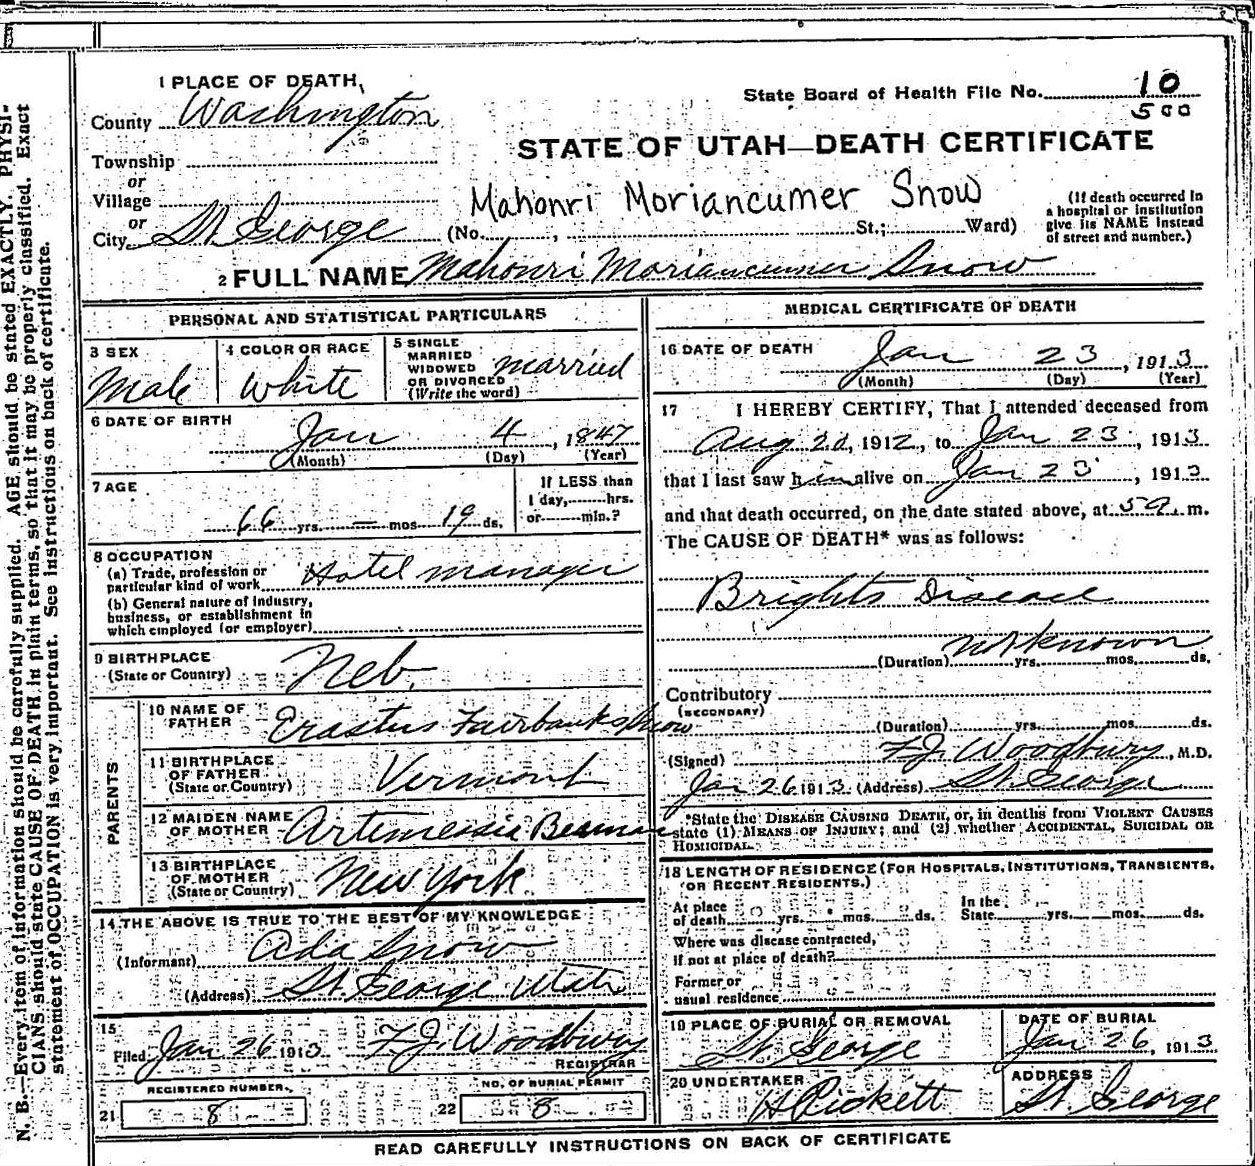 1 PLACE OF DEATH,
County Washington
Township
or
Village
or
City St George
State Board of Health File No. 10
500
STATE OF UTAH—DEATH CERTIFICATE
Mahonri Moriancumer Snow
(No. , St.; Ward)
(If death occurred in
a hospital or institution
give its NAME instead
of street and number.)
2 FULL NAME Mahonri Moriancumer Snow
PERSONAL AND STATISTICAL PARTICULARS
3 SEX
Male
4 COLOR OR RACE
White
5 SINGLE
MARRIED
WIDOWED
OR DIVORCED
(Write the word)
married
6 DATE OF BIRTH
Jan 4, 1847
(Month) (Day) (Year)
7 AGE
66 yrs. — mos. 19 ds.
If LESS than
1 day, hrs.
or min.?
8 OCCUPATION
(a) Trade, profession or
particular kind of work Hotel manager
(b) General nature of industry,
business, or establishment in
which employed (or employer)
9 BIRTHPLACE
(State or Country) Neb.
PARENTS
10 NAME OF
FATHER Erastus Fairbanks Snow
11 BIRTHPLACE
OF FATHER
(State or Country) Vermont
12 MAIDEN NAME
OF MOTHER Artimessia Beaman
13 BIRTHPLACE
OF MOTHER
(State or Country) New York
14 THE ABOVE IS TRUE TO THE BEST OF MY KNOWLEDGE
(Informant) Ada Snow
(Address) St George Utah
15
Filed Jan 26 1913 F.J. Woodbury
REGISTRAR
REGISTERED NUMBER.
21 8
NO. OF BURIAL PERMIT
22 8
MEDICAL CERTIFICATE OF DEATH
16 DATE OF DEATH
Jan 23, 1913
(Month) (Day) (Year)
17 I HEREBY CERTIFY, That I attended deceased from
Aug 20, 1912, to Jan 23, 1913
that I last saw him alive on Jan 23, 1913
and that death occurred, on the date stated above, at 5 a. m.
The CAUSE OF DEATH* was as follows:
Brights Disease
(Duration) not known yrs. mos. ds.
Contributory
(SECONDARY)
(Duration) yrs. mos. ds.
(Signed) F.J. Woodbury, M.D.
Jan 26 1913 (Address) St George
*State the DISEASE CAUSING DEATH, or, in deaths from VIOLENT CAUSES
state (1) MEANS OF INJURY; and (2) whether ACCIDENTAL, SUICIDAL OR
HOMICIDAL.
18 LENGTH OF RESIDENCE (FOR HOSPITALS, INSTITUTIONS, TRANSIENTS,
OR RECENT RESIDENTS.)
At place
of death yrs. mos. ds.
In the
State yrs. mos. ds.
Where was disease contracted,
if not at place of death?
Former or
usual residence
19 PLACE OF BURIAL OR REMOVAL
St George
DATE OF BURIAL
Jan 26, 1913
20 UNDERTAKER
H Pickett
ADDRESS
St. George
READ CAREFULLY INSTRUCTIONS ON BACK OF CERTIFICATE
N. B.—Every item of information should be carefully supplied. AGE should be stated EXACTLY. PHYSI-
CIANS should state CAUSE OF DEATH in plain terms, so that it may be properly classified. Exact
statement of OCCUPATION is very important. See instructions on back of certificate.